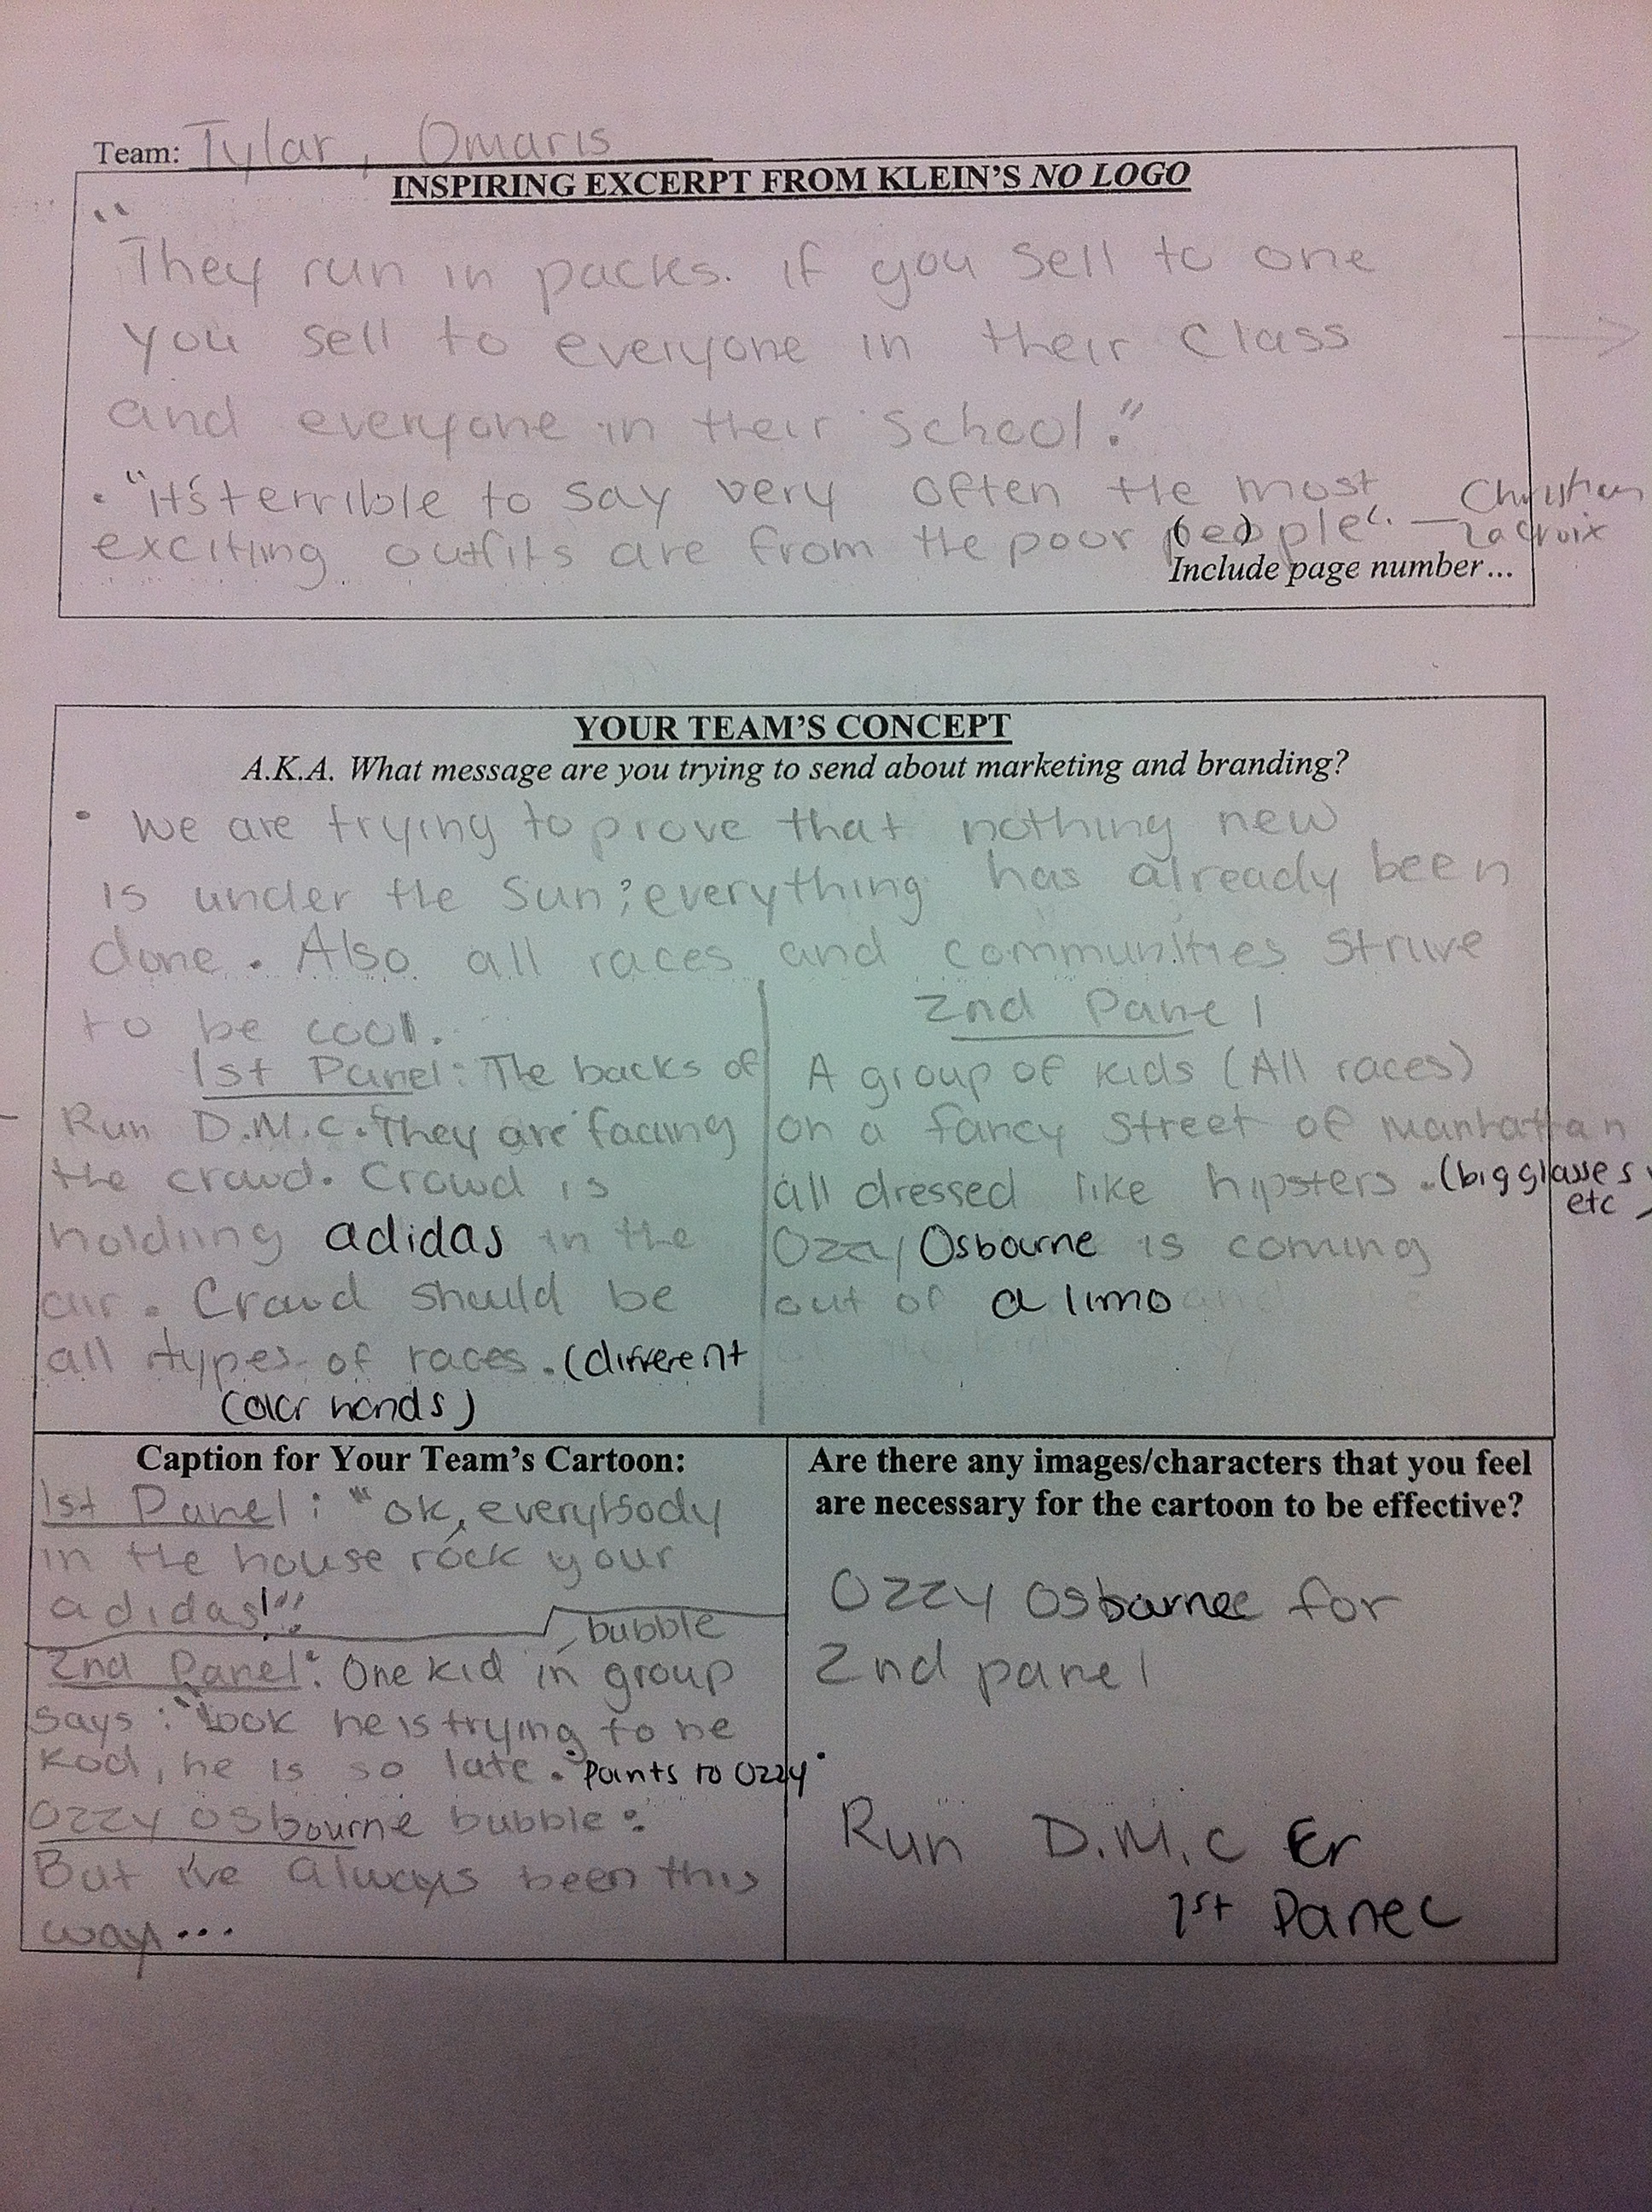 Team: Tylar, Omaris
INSPIRING EXCERPT FROM KLEIN'S NO LOGO
"They run in packs. if you sell to one
you sell to everyone in their class
and everyone in their school."
• "it's terrible to say very often the most
exciting outfits are from the poor people". — Christian
Lacroix
Include page number...
YOUR TEAM'S CONCEPT
A.K.A. What message are you trying to send about marketing and branding?
• We are trying to prove that nothing new
is under the sun; everything has already been
done. Also all races and communities strive
to be cool.
1st Panel: The backs of
Run D.M.C. They are facing
the crowd. Crowd is
holding adidas in the
air. Crowd should be
all types of races. (different
color hands)
2nd Panel
A group of kids (All races)
on a fancy street of manhattan
all dressed like hipsters. (big glasses,
etc)
Ozzy Osbourne is coming
out of a limo
Caption for Your Team's Cartoon:
1st Panel: "ok, everybody
in the house rock your
adidas!"
bubble
2nd Panel: One kid in group
says: "Look he is trying to be
kool, he is so late. "Points to Ozzy"
Ozzy Osbourne bubble:
But i've always been this
way...
Are there any images/characters that you feel
are necessary for the cartoon to be effective?
Ozzy Osbourne for
2nd panel
Run D.M.C For
1st Panel